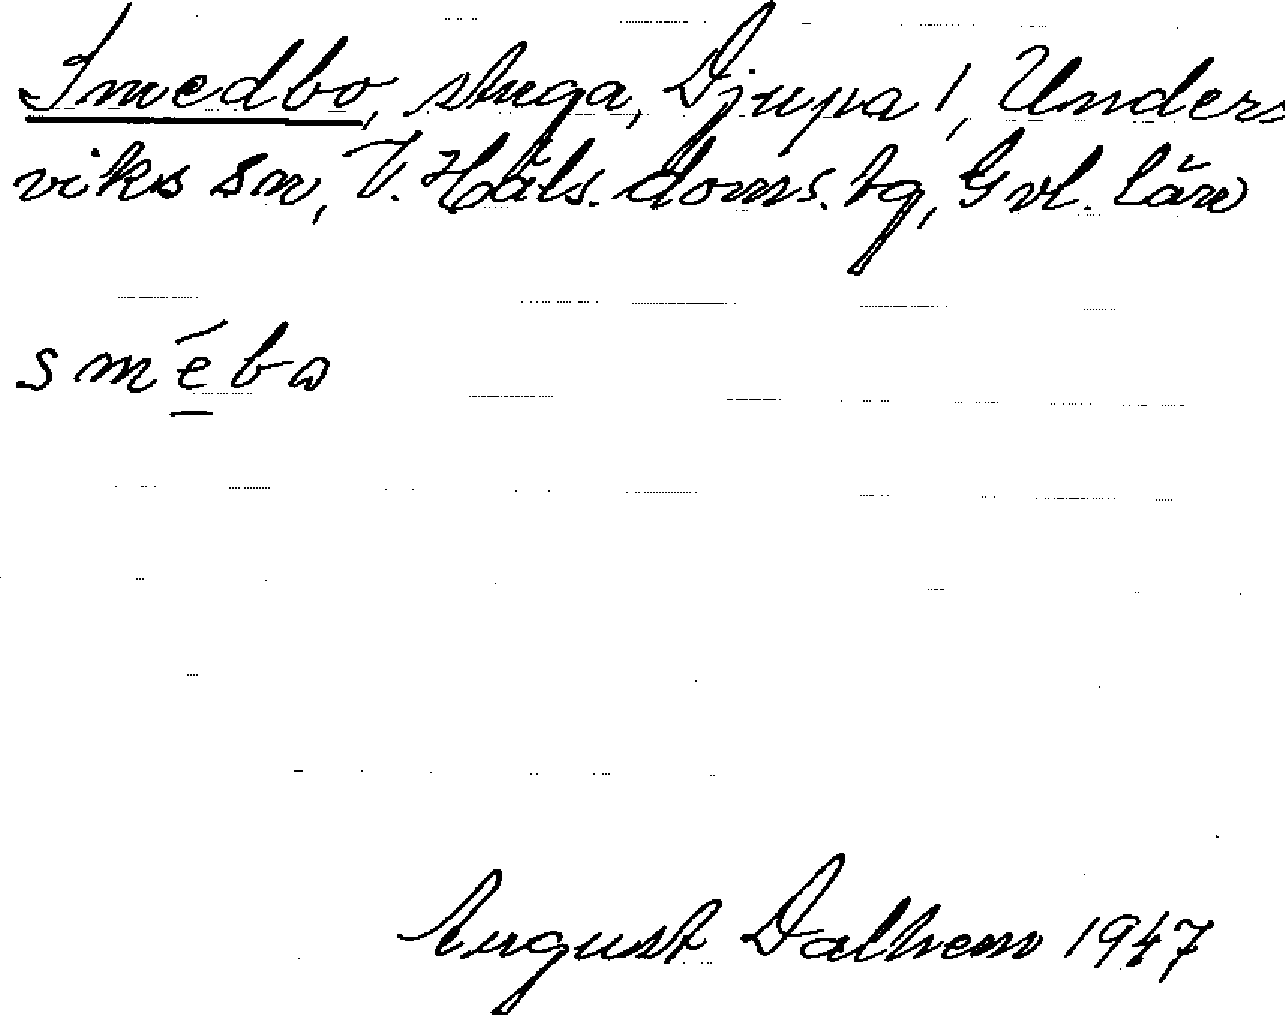 Smedbo, stuga, Djupa 1, Unders
viks sn, V. Häls. doms. tg, Gvl. län
smēbo
August Dalhem 1947